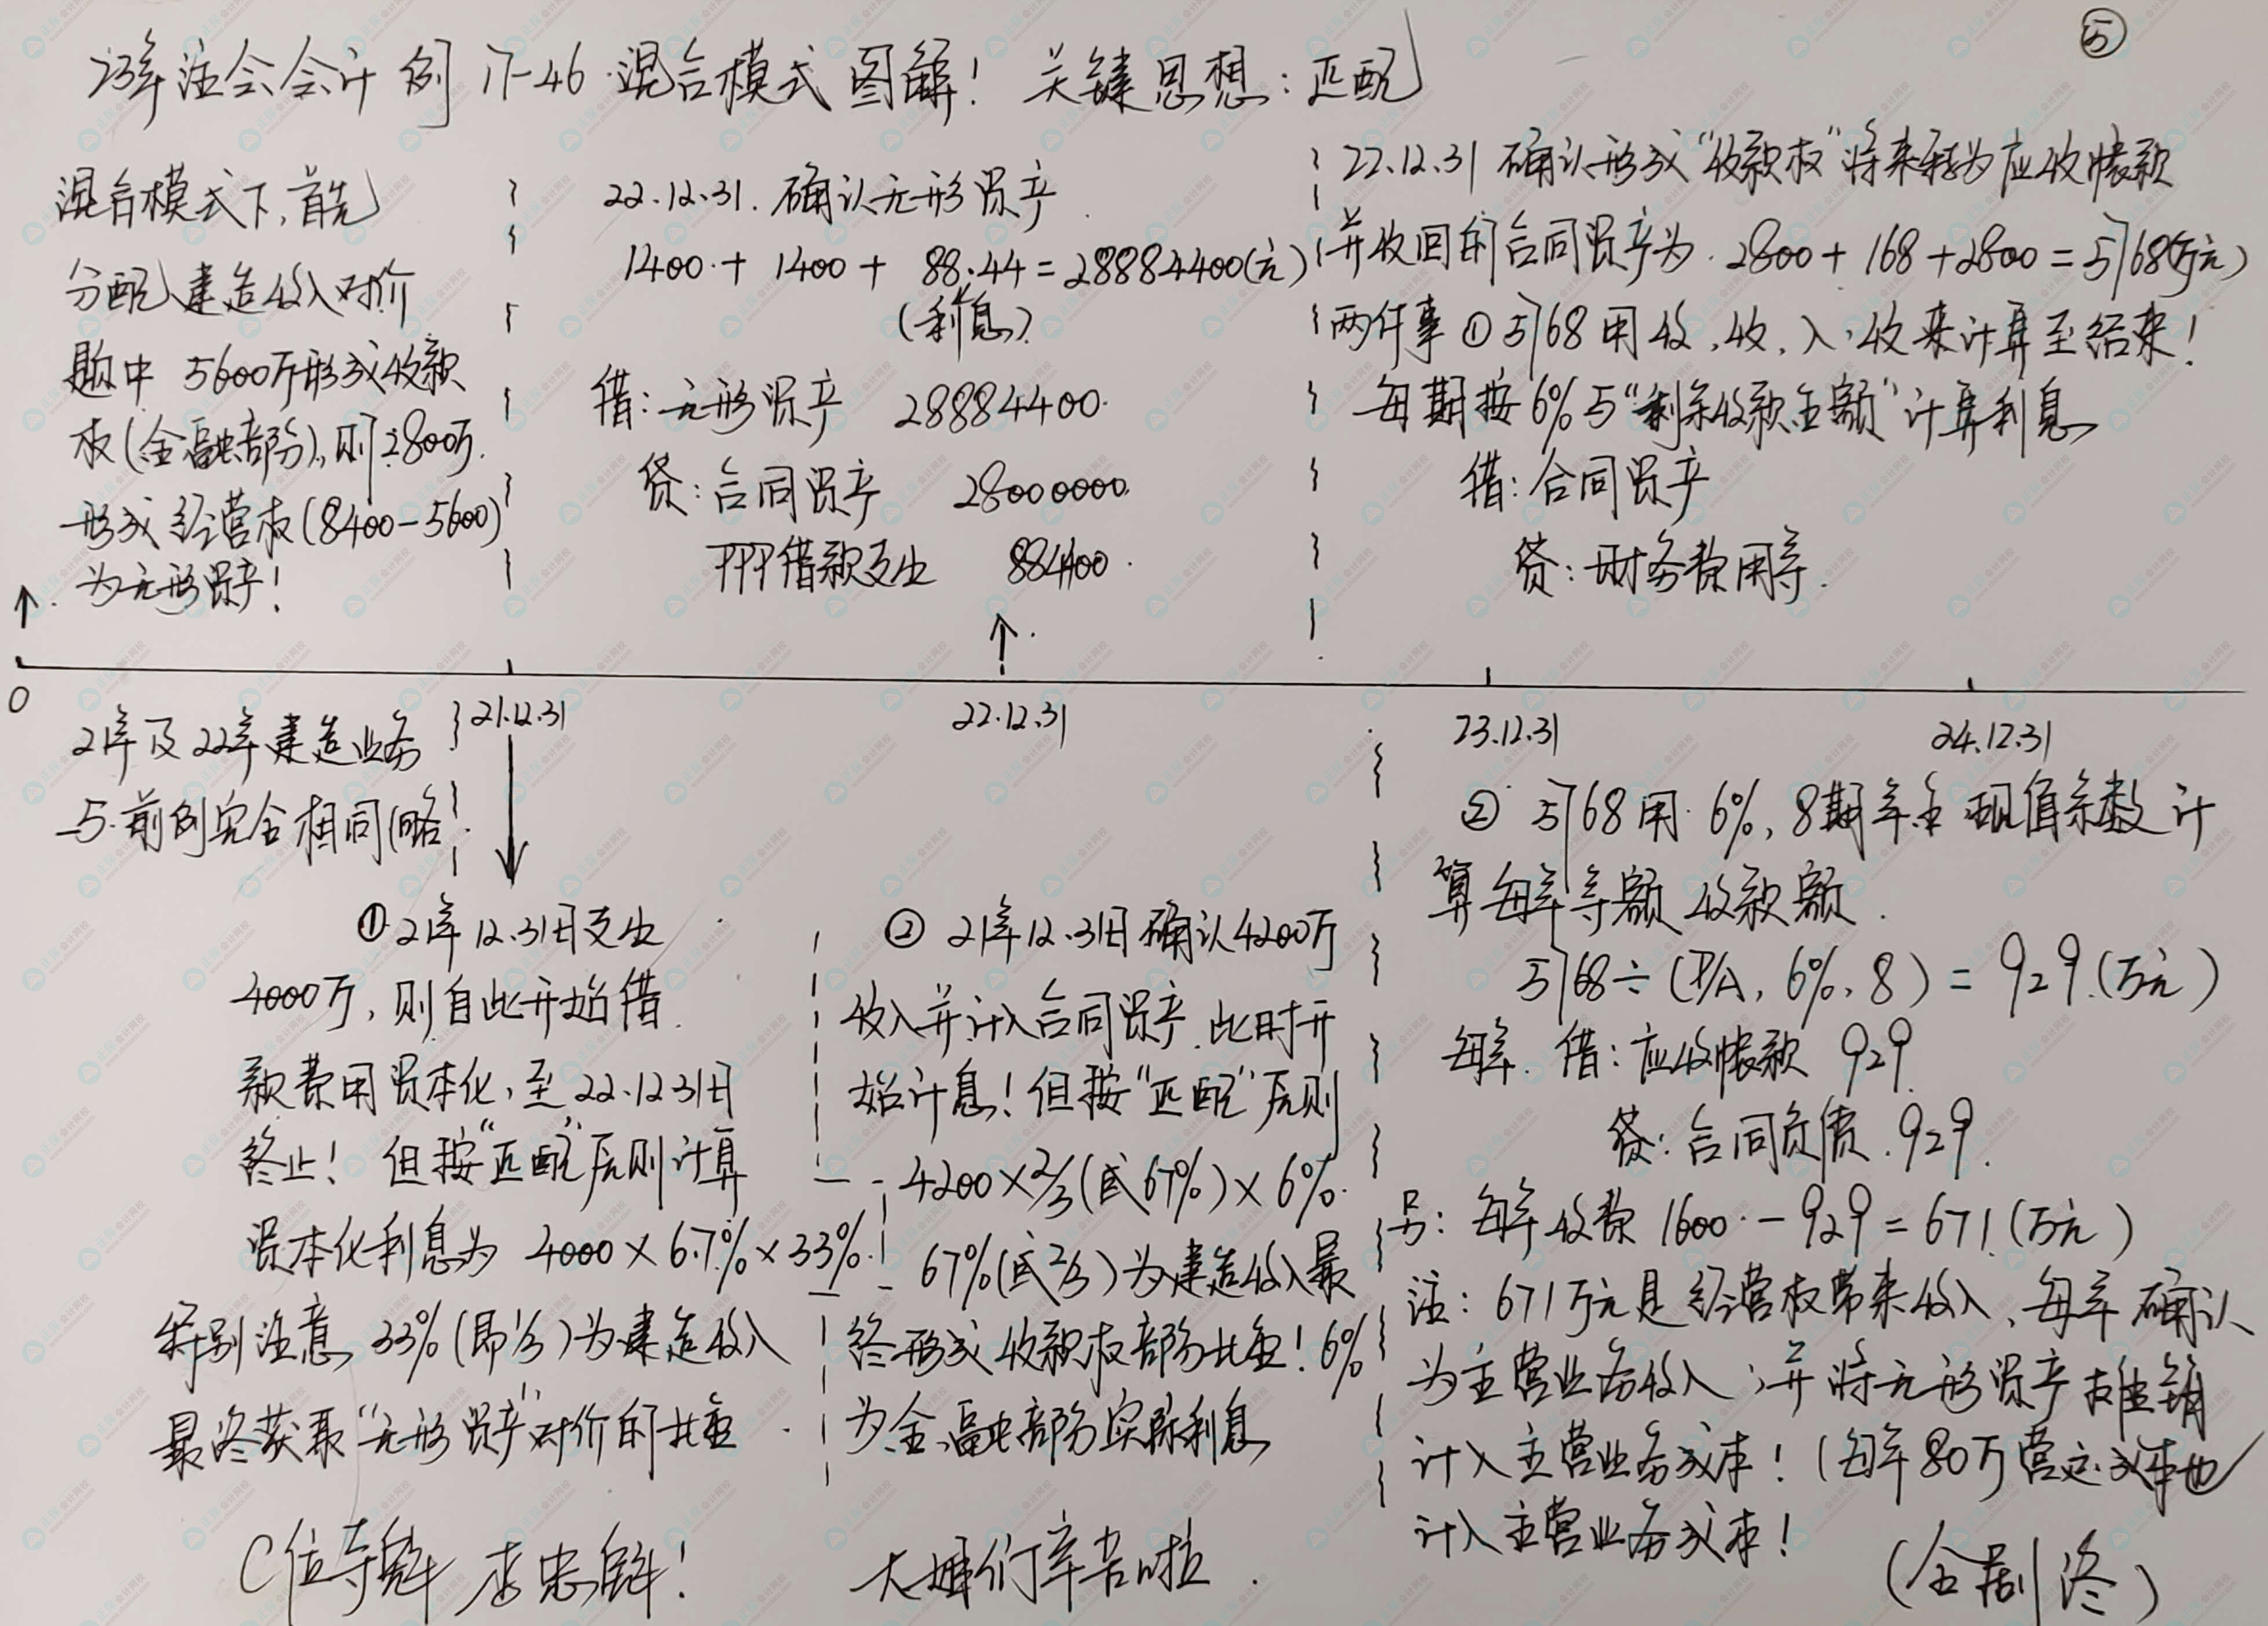 ⑤
23年注会会计 例17-46 混合模式图解！关键思想：匹配
混合模式下，首先
分配建造收入对价
题中 5600万形成收款
权(金融部分)，则2800万
形成经营权(8400-5600)
为无形资产！
22.12.31. 确认无形资产
1400 + 1400 + 88.44 = 28884400(元)
(利息)
借：无形资产 28884400
贷：合同资产 28000000
PPP借款支出 884400
22.12.31 确认形成“收款权”将来转为应收账款
并收回的合同资产为 2800 + 168 + 2800 = 5768(万元)
两件事 ① 5768用收、收、入、收来计算至结束！
每期按6%与“剩余收款金额”计算利息
借：合同资产
贷：财务费用等
0
21.12.31
22.12.31
23.12.31
24.12.31
21年及22年建造业务
与前例完全相同(略
① 21年12.31日支出
4000万，则自此开始借
款费用资本化，至22.12.31日
终止！但按“匹配”原则计算
资本化利息为 4000×6.7%×33%
特别注意，33%(即1/3)为建造收入
最终获取“无形资产”对价的比重
② 21年12.31日确认4200万
收入并计入合同资产，此时开
始计息！但按“匹配”原则
4200×2/3(或67%)×6%
67%(或2/3)为建造收入最
终形成收款权部分比重！6%
为金融部分实际利息
② 5768用6%，8期年金现值系数计
算每年等额收款额
5768÷(P/A, 6%, 8) = 929(万元)
每年 借：应收账款 929
贷：合同负债 929
另：每年收费 1600 - 929 = 671(万元)
注：671万元是经营权带来收入，每年确认
为主营业务收入；并将无形资产摊销
计入主营业务成本！(每年80万营运成本也
计入主营业务成本！
(全剧终)
C位夺魁 李忠魁！
大婶们辛苦啦